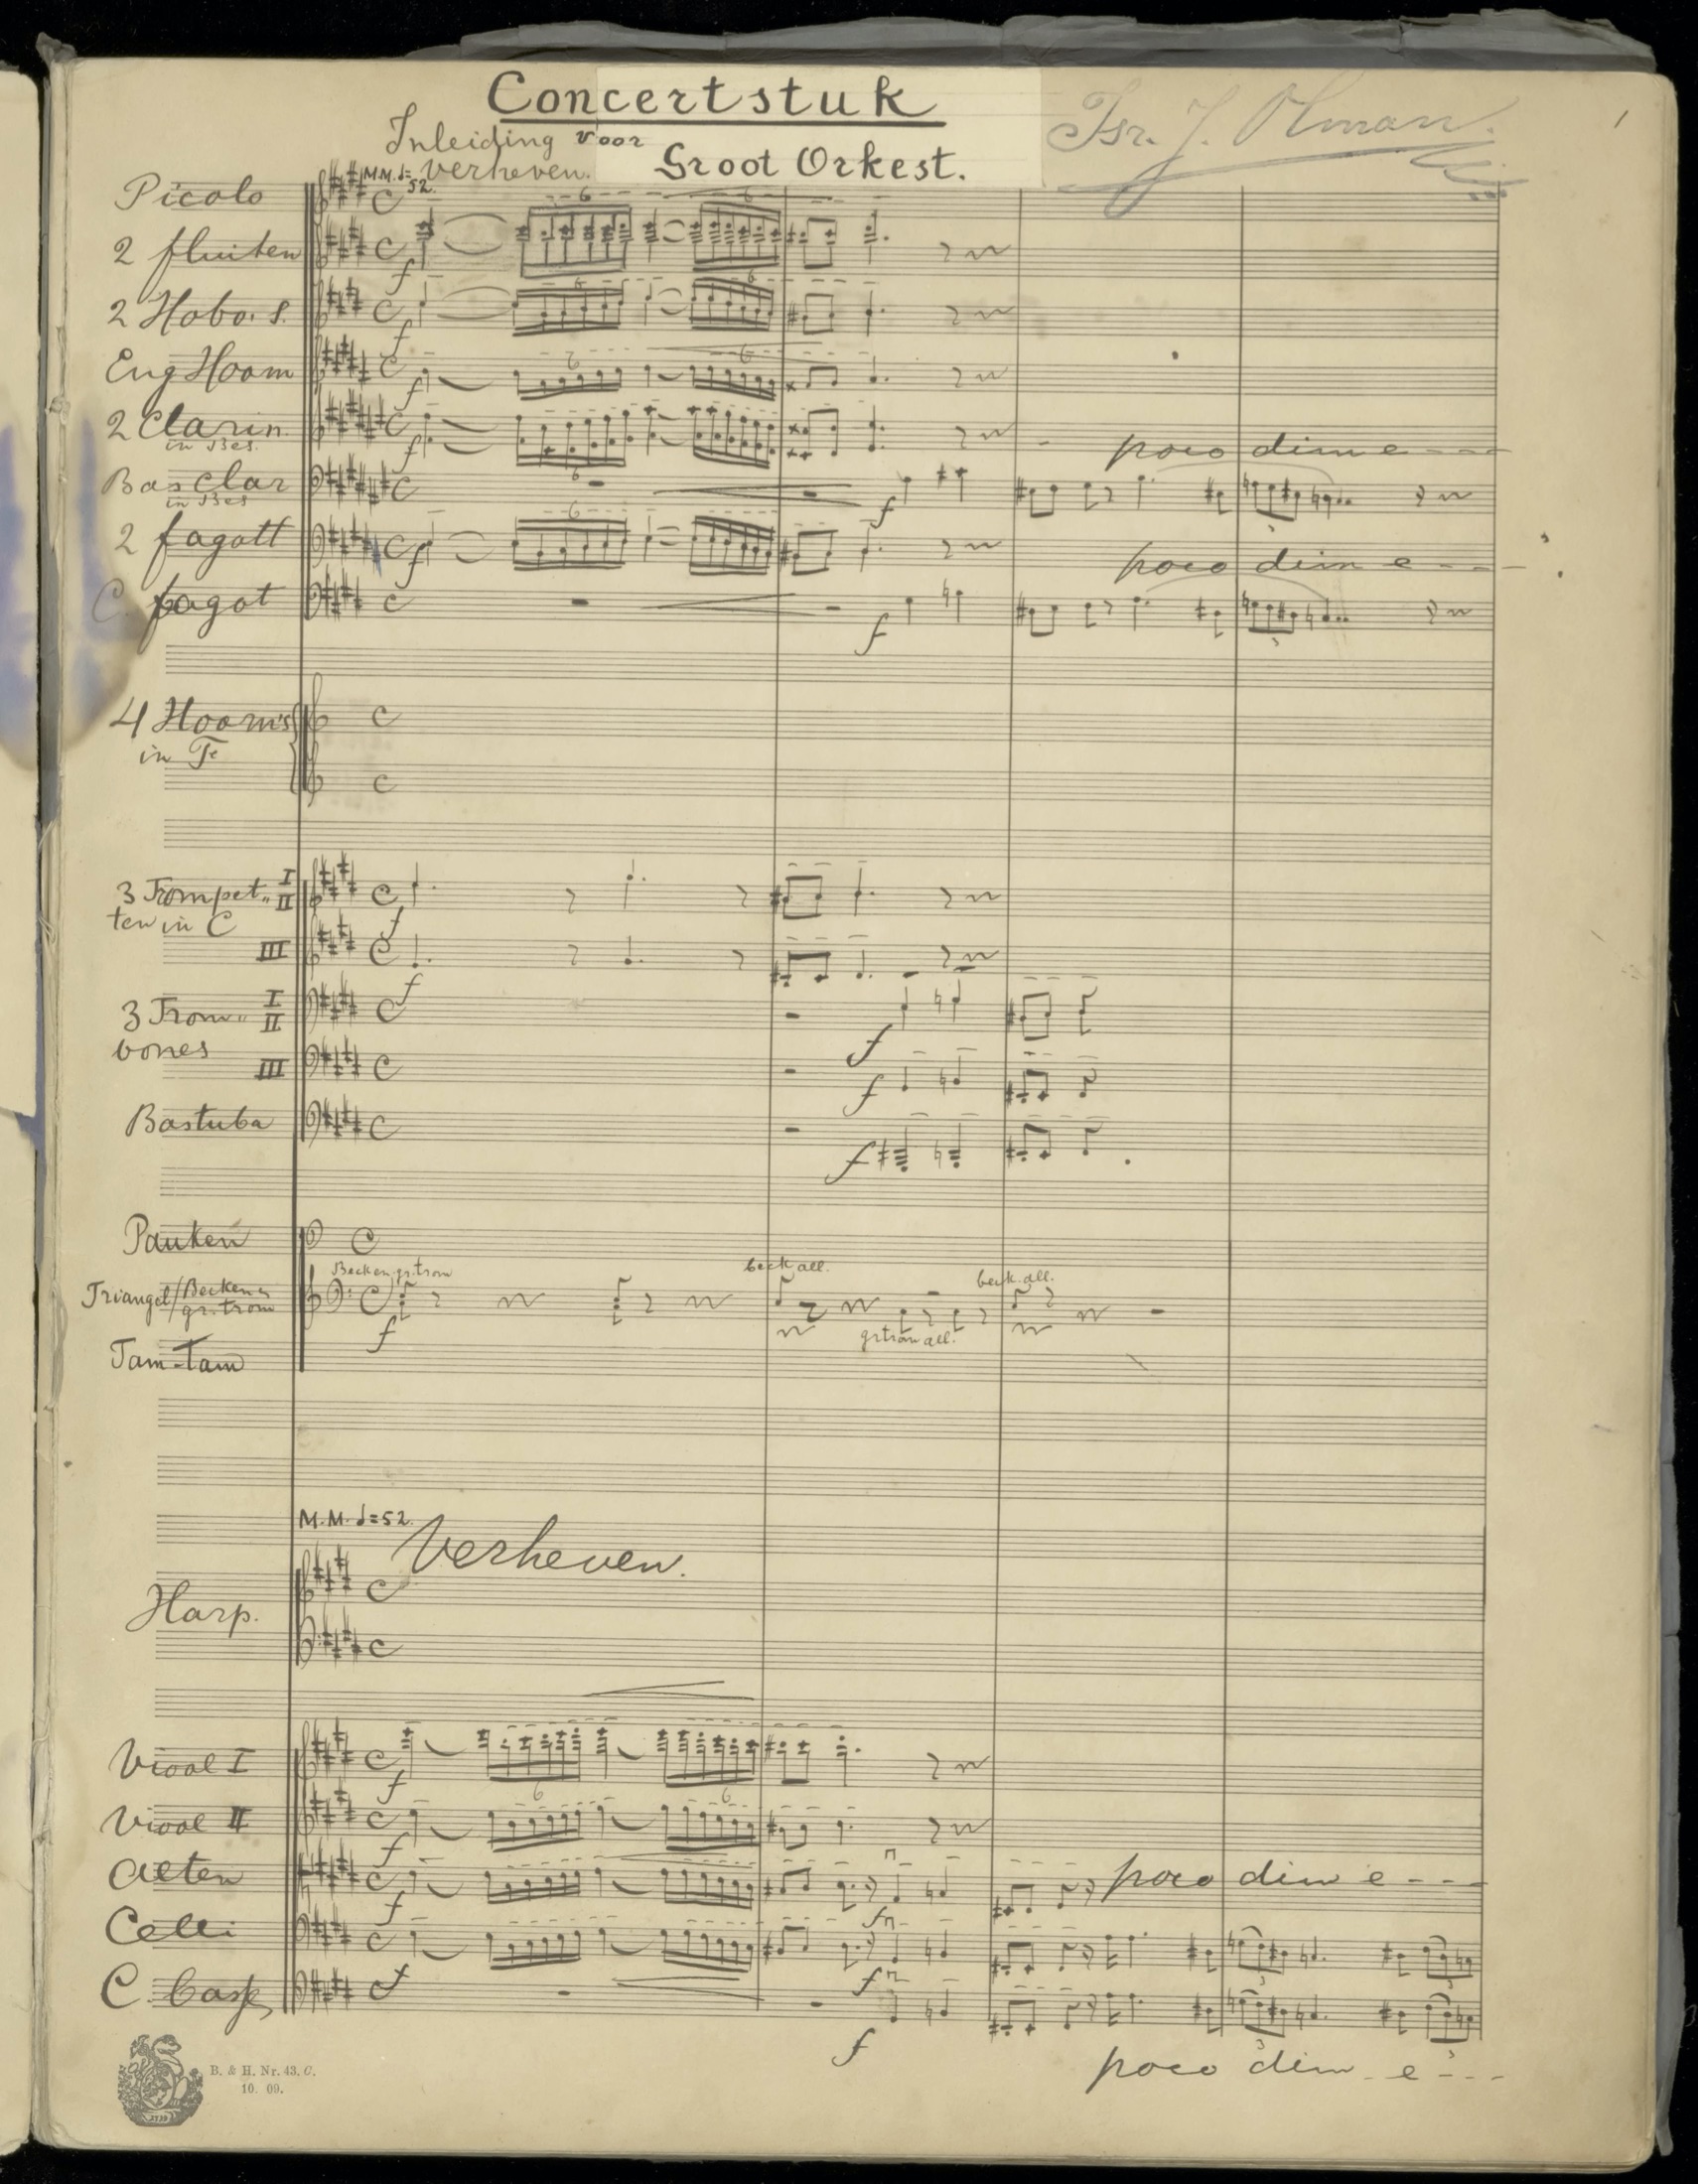 Concertstuk
Inleiding voor
Groot Orkest.
Isr. J. Olman.
1
M.M. ♩=52.
Verheven.
Picolo
2 fluiten
f
2 Hobo's.
f
Eng Hoorn
f
2 Clarin.
in Bes.
f
poco dim e - - -
Bas clar
in Bes
f
2 fagott
f
poco dim e - - -
C. fagot
f
4 Hoorn's
in F
3 Trompet"
ten in C
I
II
f
III
f
3 Trom"
bones
I
II
f
III
f
Bastuba
f
Pauken
Becken. gr. trom
beck. all.
beck. all.
Triangel/Becken
gr. trom
f
gr trom all.
Tam-Tam
M.M. ♩=52.
Verheven.
Harp.
Viool I
f
6
6
Viool II
f
Alten
f
poco dim e - - -
f
Celli
f
f
C. bass
f
poco dim - e - - -
B. & H. Nr. 43. C.
10. 09.